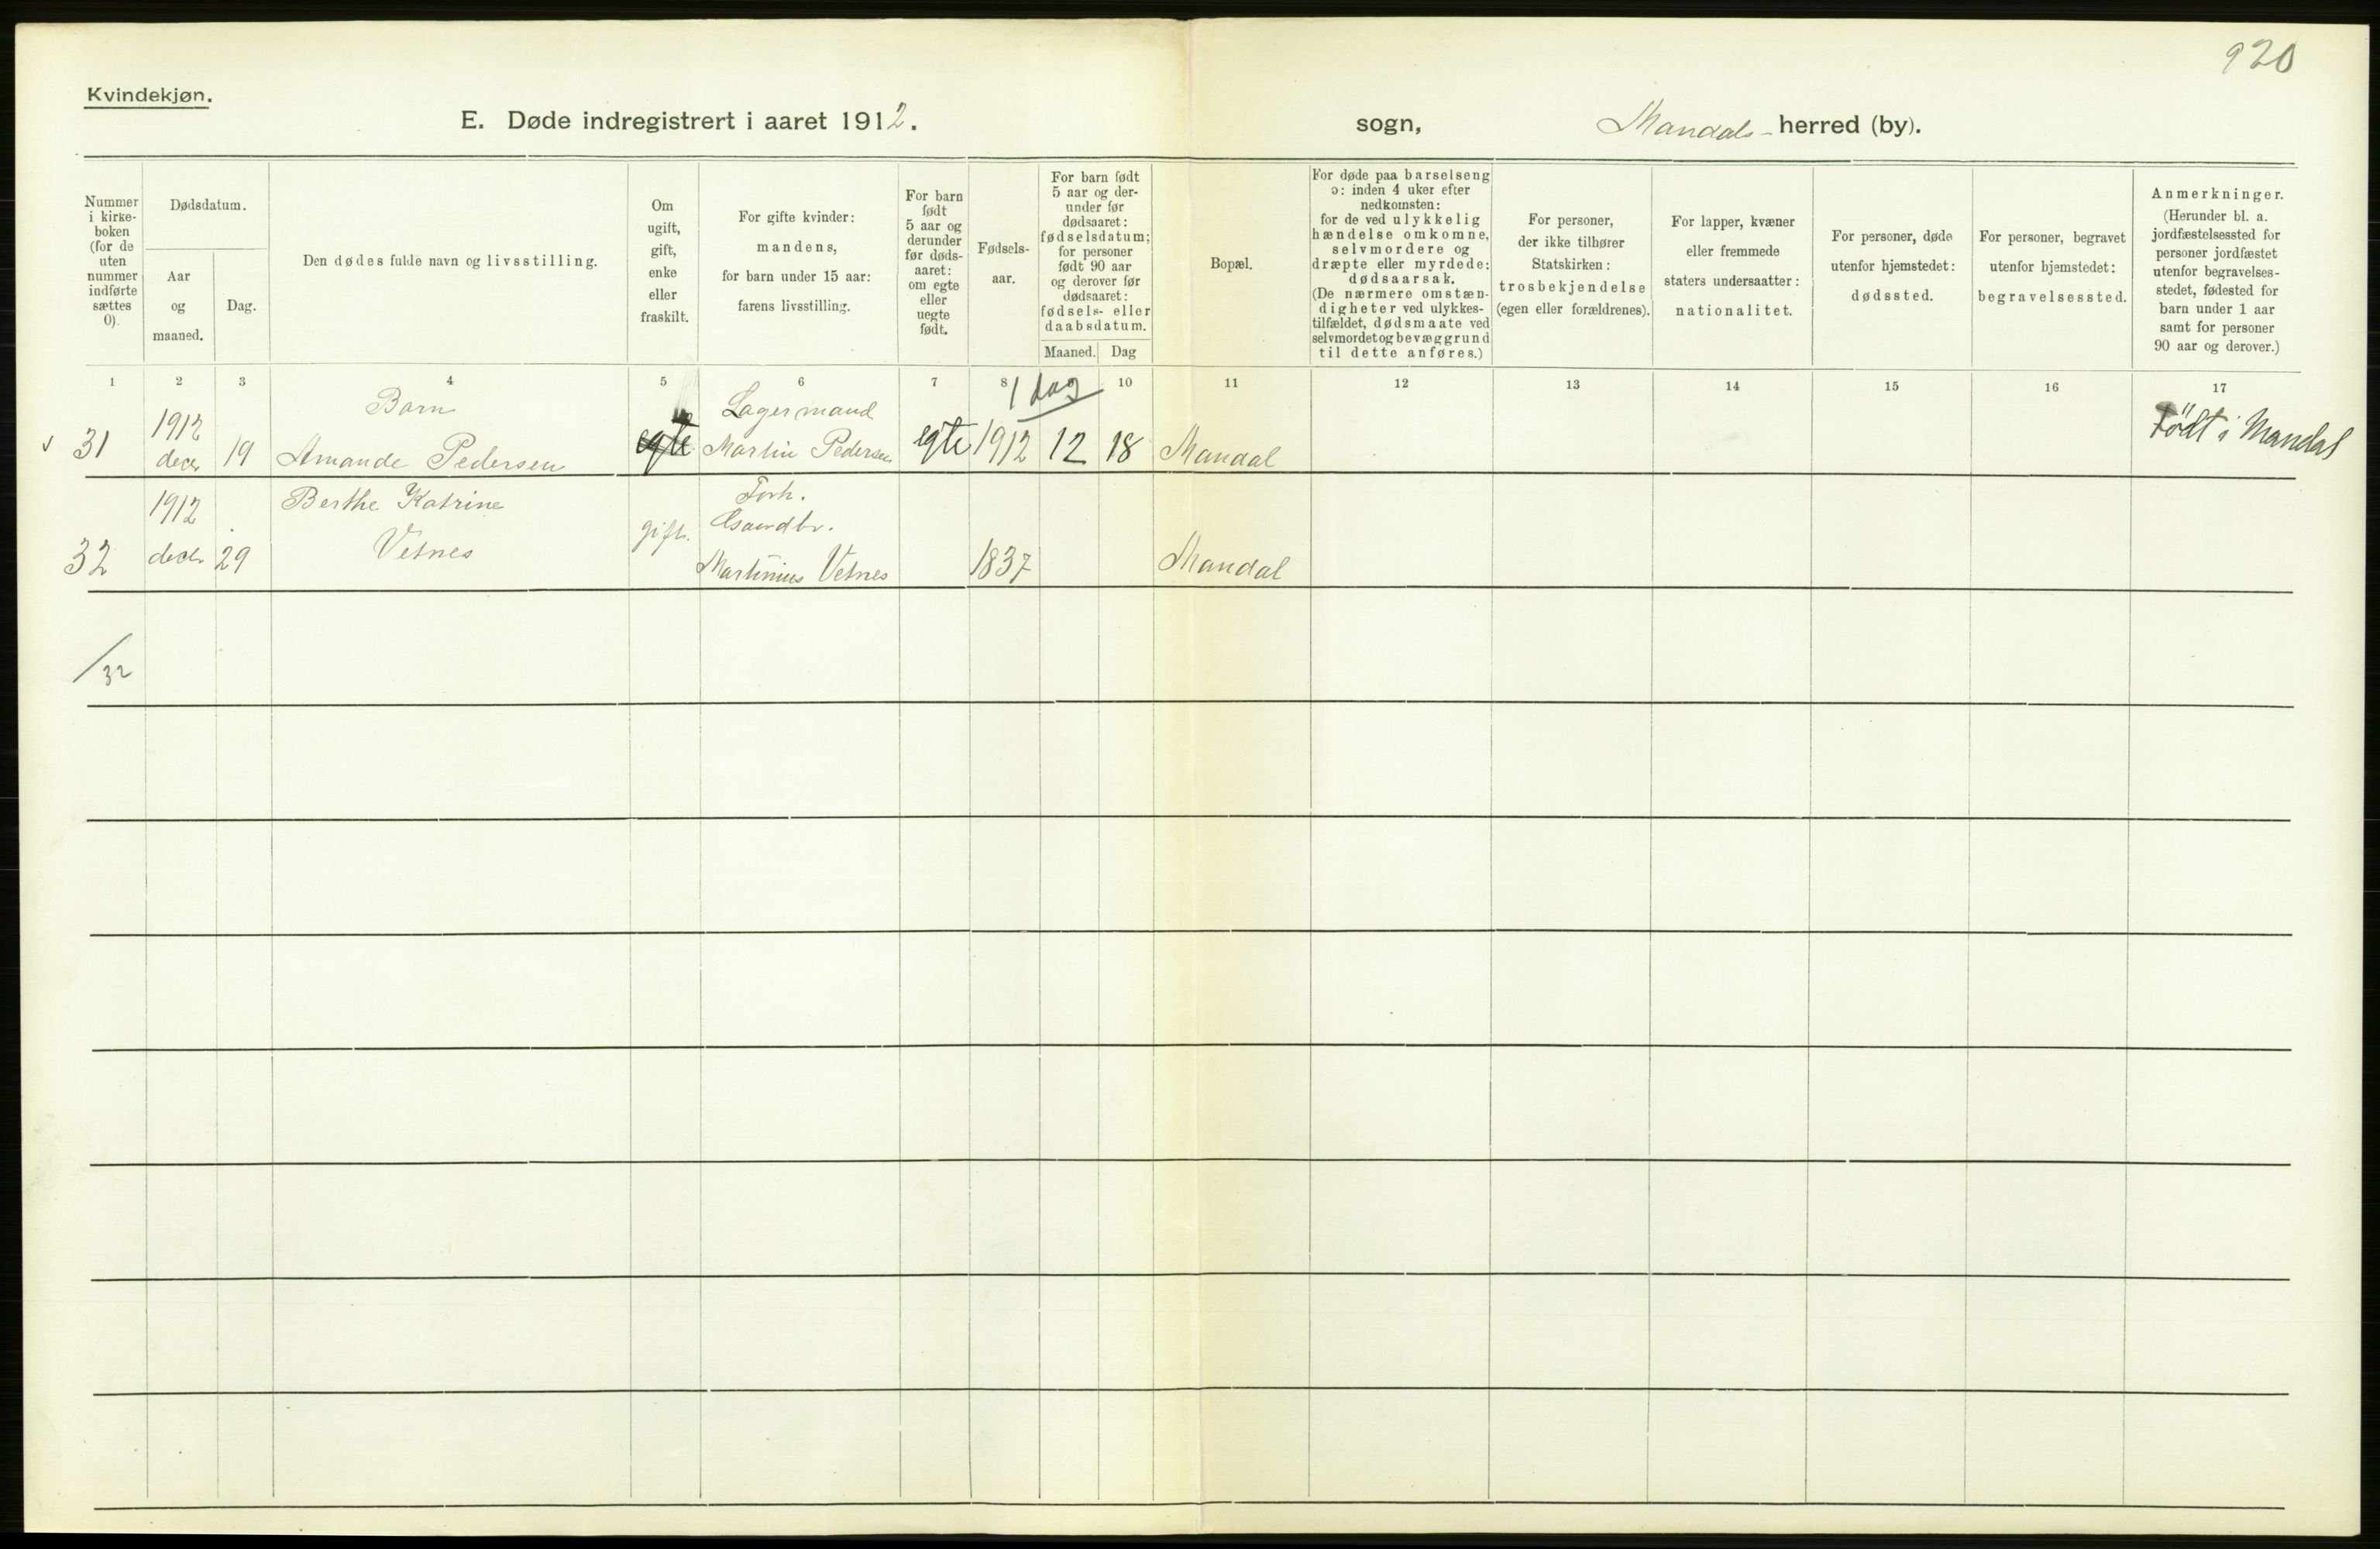 920
Kvindekjøn.
E. Døde indregistrert i aaret 1912.
sogn, Mandals herred (by).
Nummer
i kirke-
boken
(for de
uten
nummer
indførte
sættes
0).
Dødsdatum.
Aar
og
maaned.
Dag.
Den dødes fulde navn og livsstilling.
Om
ugift,
gift,
enke
eller
fraskilt.
For gifte kvinder:
mandens,
for barn under 15 aar:
farens livsstilling.
For barn
født
5 aar og
derunder
før døds-
aaret:
om egte
eller
uegte
født.
Fødsels-
aar.
For barn født
5 aar og der-
under før
dødsaaret:
fødselsdatum;
for personer
født 90 aar
og derover før
dødsaaret:
fødsels- eller
daabsdatum.
Maaned. Dag
Bopæl.
For døde paa barselseng
ɔ: inden 4 uker efter
nedkomsten:
for de ved ulykkelig
hændelse omkomne,
selvmordere og
dræpte eller myrdede:
dødsaarsak.
(De nærmere omstæn-
digheter ved ulykkes-
tilfældet, dødsmaate ved
selvmordet og bevæggrund
til dette anføres.)
For personer,
der ikke tilhører
Statskirken:
trosbekjendelse
(egen eller forældrenes).
For lapper, kvæner
eller fremmede
staters undersaatter:
nationalitet.
For personer, døde
utenfor hjemstedet:
dødssted.
For personer, begravet
utenfor hjemstedet:
begravelsessted.
Anmerkninger.
(Herunder bl. a.
jordfæstelsessted for
personer jordfæstet
utenfor begravelses-
stedet, fødested for
barn under 1 aar
samt for personer
90 aar og derover.)
1 2 3 4 5 6 7 8 9 10 11 12 13 14 15 16 17
1 dag
31
1912
decr
19
Barn
Amande Pedersen
egte
Lagermand
Martin Pedersen
egte
1912
12
18
Mandal
Födt i Mandal
32
1912
decr
29
Berthe Katrine
Vetnes
gift.
Forh.
Martinius Vetnes
1837
Mandal
/32